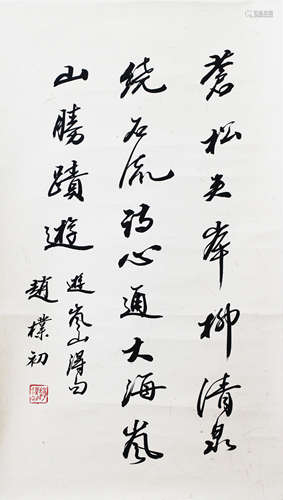 蒼松夹岸柳清泉
绕石流詩心通大海嵐
山勝蹟遊
遊嵐山得句
趙樸初